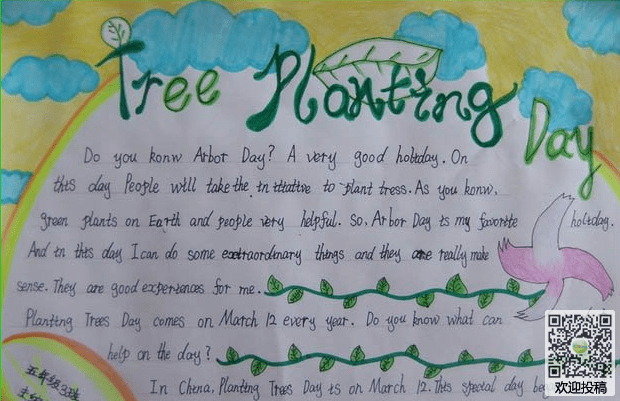 Tree Planting Day
Do you konw Arbor Day? A very good holiday. On
this day People will take the initiative to plant tress. As you konw,
green plants on Earth and people very helpful. So, Arbor Day is my favorite holiday.
And in this day I can do some extraordinary things and they are really make
sense. They are good experiences for me.
Planting Trees Day comes on March 12 every year. Do you know what can
help on the day?
In China, Planting Trees Day is on March 12. This special day be
五年级3班
欢迎投稿